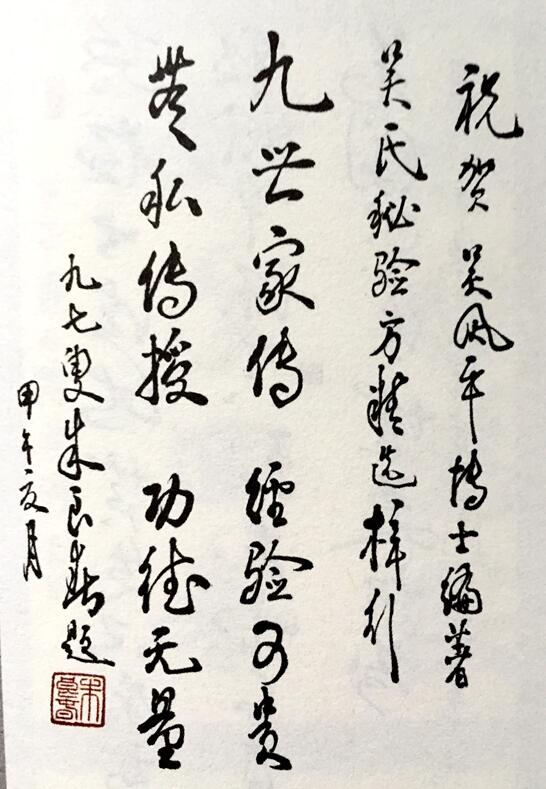 祝贺 吴风平博士编著
吴氏秘验方精选梓行
九世家传 经验可贵
无私传授 功德无量
九七叟朱良春题
甲午六月
朱良春